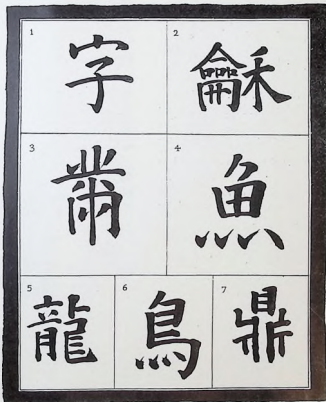 1 字
2 龢
3 黹
4 魚
5 龍
6 鳥
7 鼎